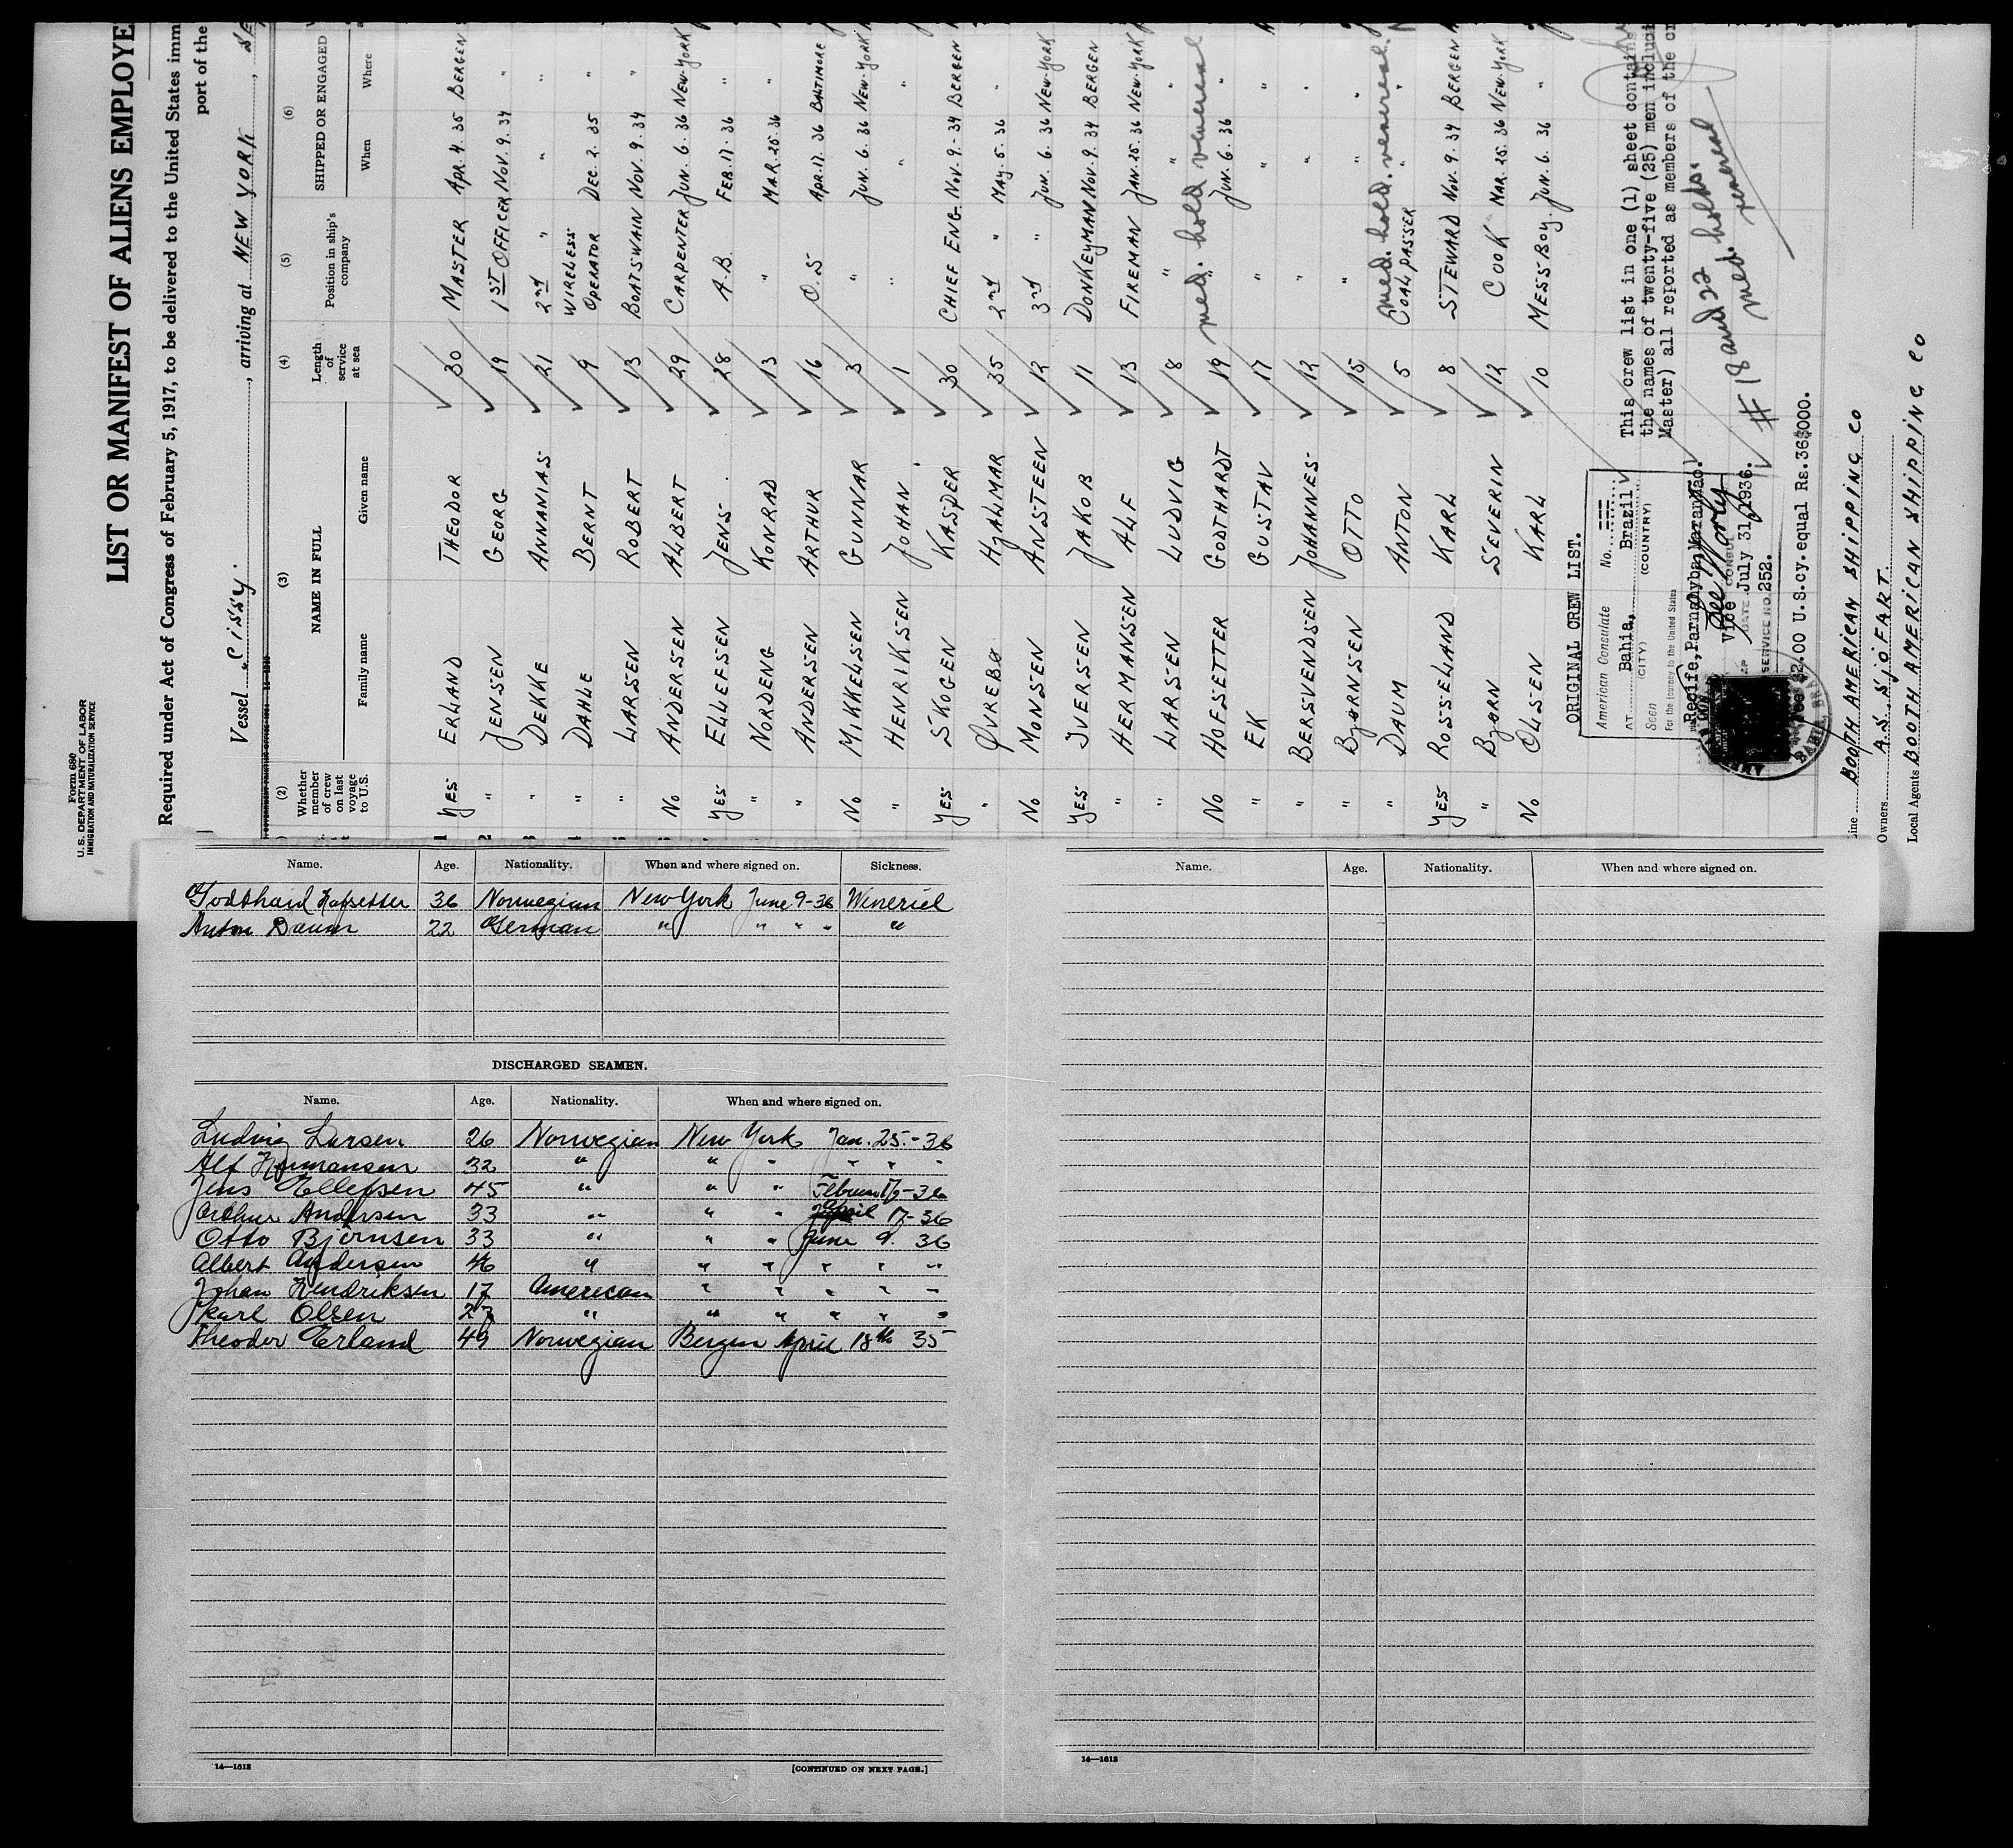 Form 680
U. S. DEPARTMENT OF LABOR
IMMIGRATION AND NATURALIZATION SERVICE
LIST OR MANIFEST OF ALIENS EMPLOYE
Required under Act of Congress of February 5, 1917, to be delivered to the United States imm
port of the
Vessel „CISSY", arriving at NEW YORK,
(2) (3) (4) (5) (6)
Whether member of crew on last voyage to U.S. NAME IN FULL Length of service at sea Position in ship's company SHIPPED OR ENGAGED
Family name Given name When Where
1 YES ERLAND THEODOR 30 MASTER APR. 4. 35 BERGEN
2 " JENSEN GEORG 19 1ST OFFICER NOV. 9. 34 "
" DEKKE ANNANIAS 21 2nd " " "
" DAHLE BERNT 9 WIRELESS OPERATOR DEC. 2. 35 "
" LARSEN ROBERT 13 BOATSWAIN NOV. 9. 34 "
NO ANDERSEN ALBERT 29 CARPENTER JUN. 6. 36 NEW-YORK
YES ELLEFSEN JENS. 28 A.B. FEB. 17. 36 "
" NORDENG KONRAD 13 " MAR. 25. 36 "
" ANDERSEN ARTHUR 16 O.S APR. 17. 36 BALTIMORE
NO MIKKELSEN GUNNAR 3 " JUN. 6. 36 NEW-YORK
" HENRIKSEN JOHAN 1 " " "
YES SKOGEN KASPER 30 CHIEF ENG. NOV. 9. - 34 BERGEN
" ØVREBØ HJALMAR 35 2nd " MAY. 5. 36 "
NO MONSEN ANSTEEN 12 3rd " JUN. 6. 36 NEW-YORK
YES IVERSEN JAKOB 11 DONKEYMAN NOV. 9. 34 BERGEN
" HERMANSEN ALF 13 FIREMAN JAN. 25. 36 NEW YORK
" LARSEN LUDVIG 8 " " "
med. hold venereal
NO HOFSETTER GODTHARDT 19 " JUN. 6. 36 "
" EK GUSTAV 17 " " "
" BERSVENDSEN JOHANNES 12 " " "
" BJØRNSEN OTTO 15 " " "
med. hold. venereal.
" DAUM ANTON 5 COALPASSER " "
YES ROSSELAND KARL 8 STEWARD NOV. 9. 34 BERGEN
" BJØRN SEVERIN 12 COOK MAR. 25. 36 NEW-YORK
NO OLSEN KARL 10 MESSBOY. JUN. 6. 36 "
ORIGINAL CREW LIST.
American Consulate No.
AT Bahia, Brazil
(CITY) (COUNTRY)
Seen
For the journey to the United States
Recife, Parnahyba, Maranhao.
Vice CONSUL
DATE July 31, 1936.
SERVICE NO. 252.
Fee $2.00 U.S.cy. equal Rs.36$000.
This crew list in one (1) sheet contains
the names of twenty-five (25) men includi
Master) all reported as members of the cr
# 18 and 22 holds.
med. venereal
Line BOOTH AMERICAN SHIPPING CO
Owners A.S. SJÖFART.
Local Agents BOOTH AMERICAN SHIPPING CO
Name. Age. Nationality. When and where signed on. Sickness.
Godthard Hofsetter 36 Norwegian New York June 9-36 Weneriel
Anton Daum 22 German " " " " "
DISCHARGED SEAMEN.
Name. Age. Nationality. When and where signed on.
Ludvig Larsen 26 Norwegian New York Jan. 25.-36
Alf Hermansen 32 " " " " " "
Jens Ellefsen 45 " " " 17-36
Arthur Andersen 33 " " " April 17-36
Otto Björnsen 33 " " " June 9. 36
Albert Andersen 46 " " " " " "
Johan Hendriksen 17 American " " " " "
Karl Olsen " " " " " "
Theodor Erland 49 Norwegian Bergen April 18th 35
14—1612 [CONTINUED ON NEXT PAGE.]
Name. Age. Nationality. When and where signed on.
14—1612